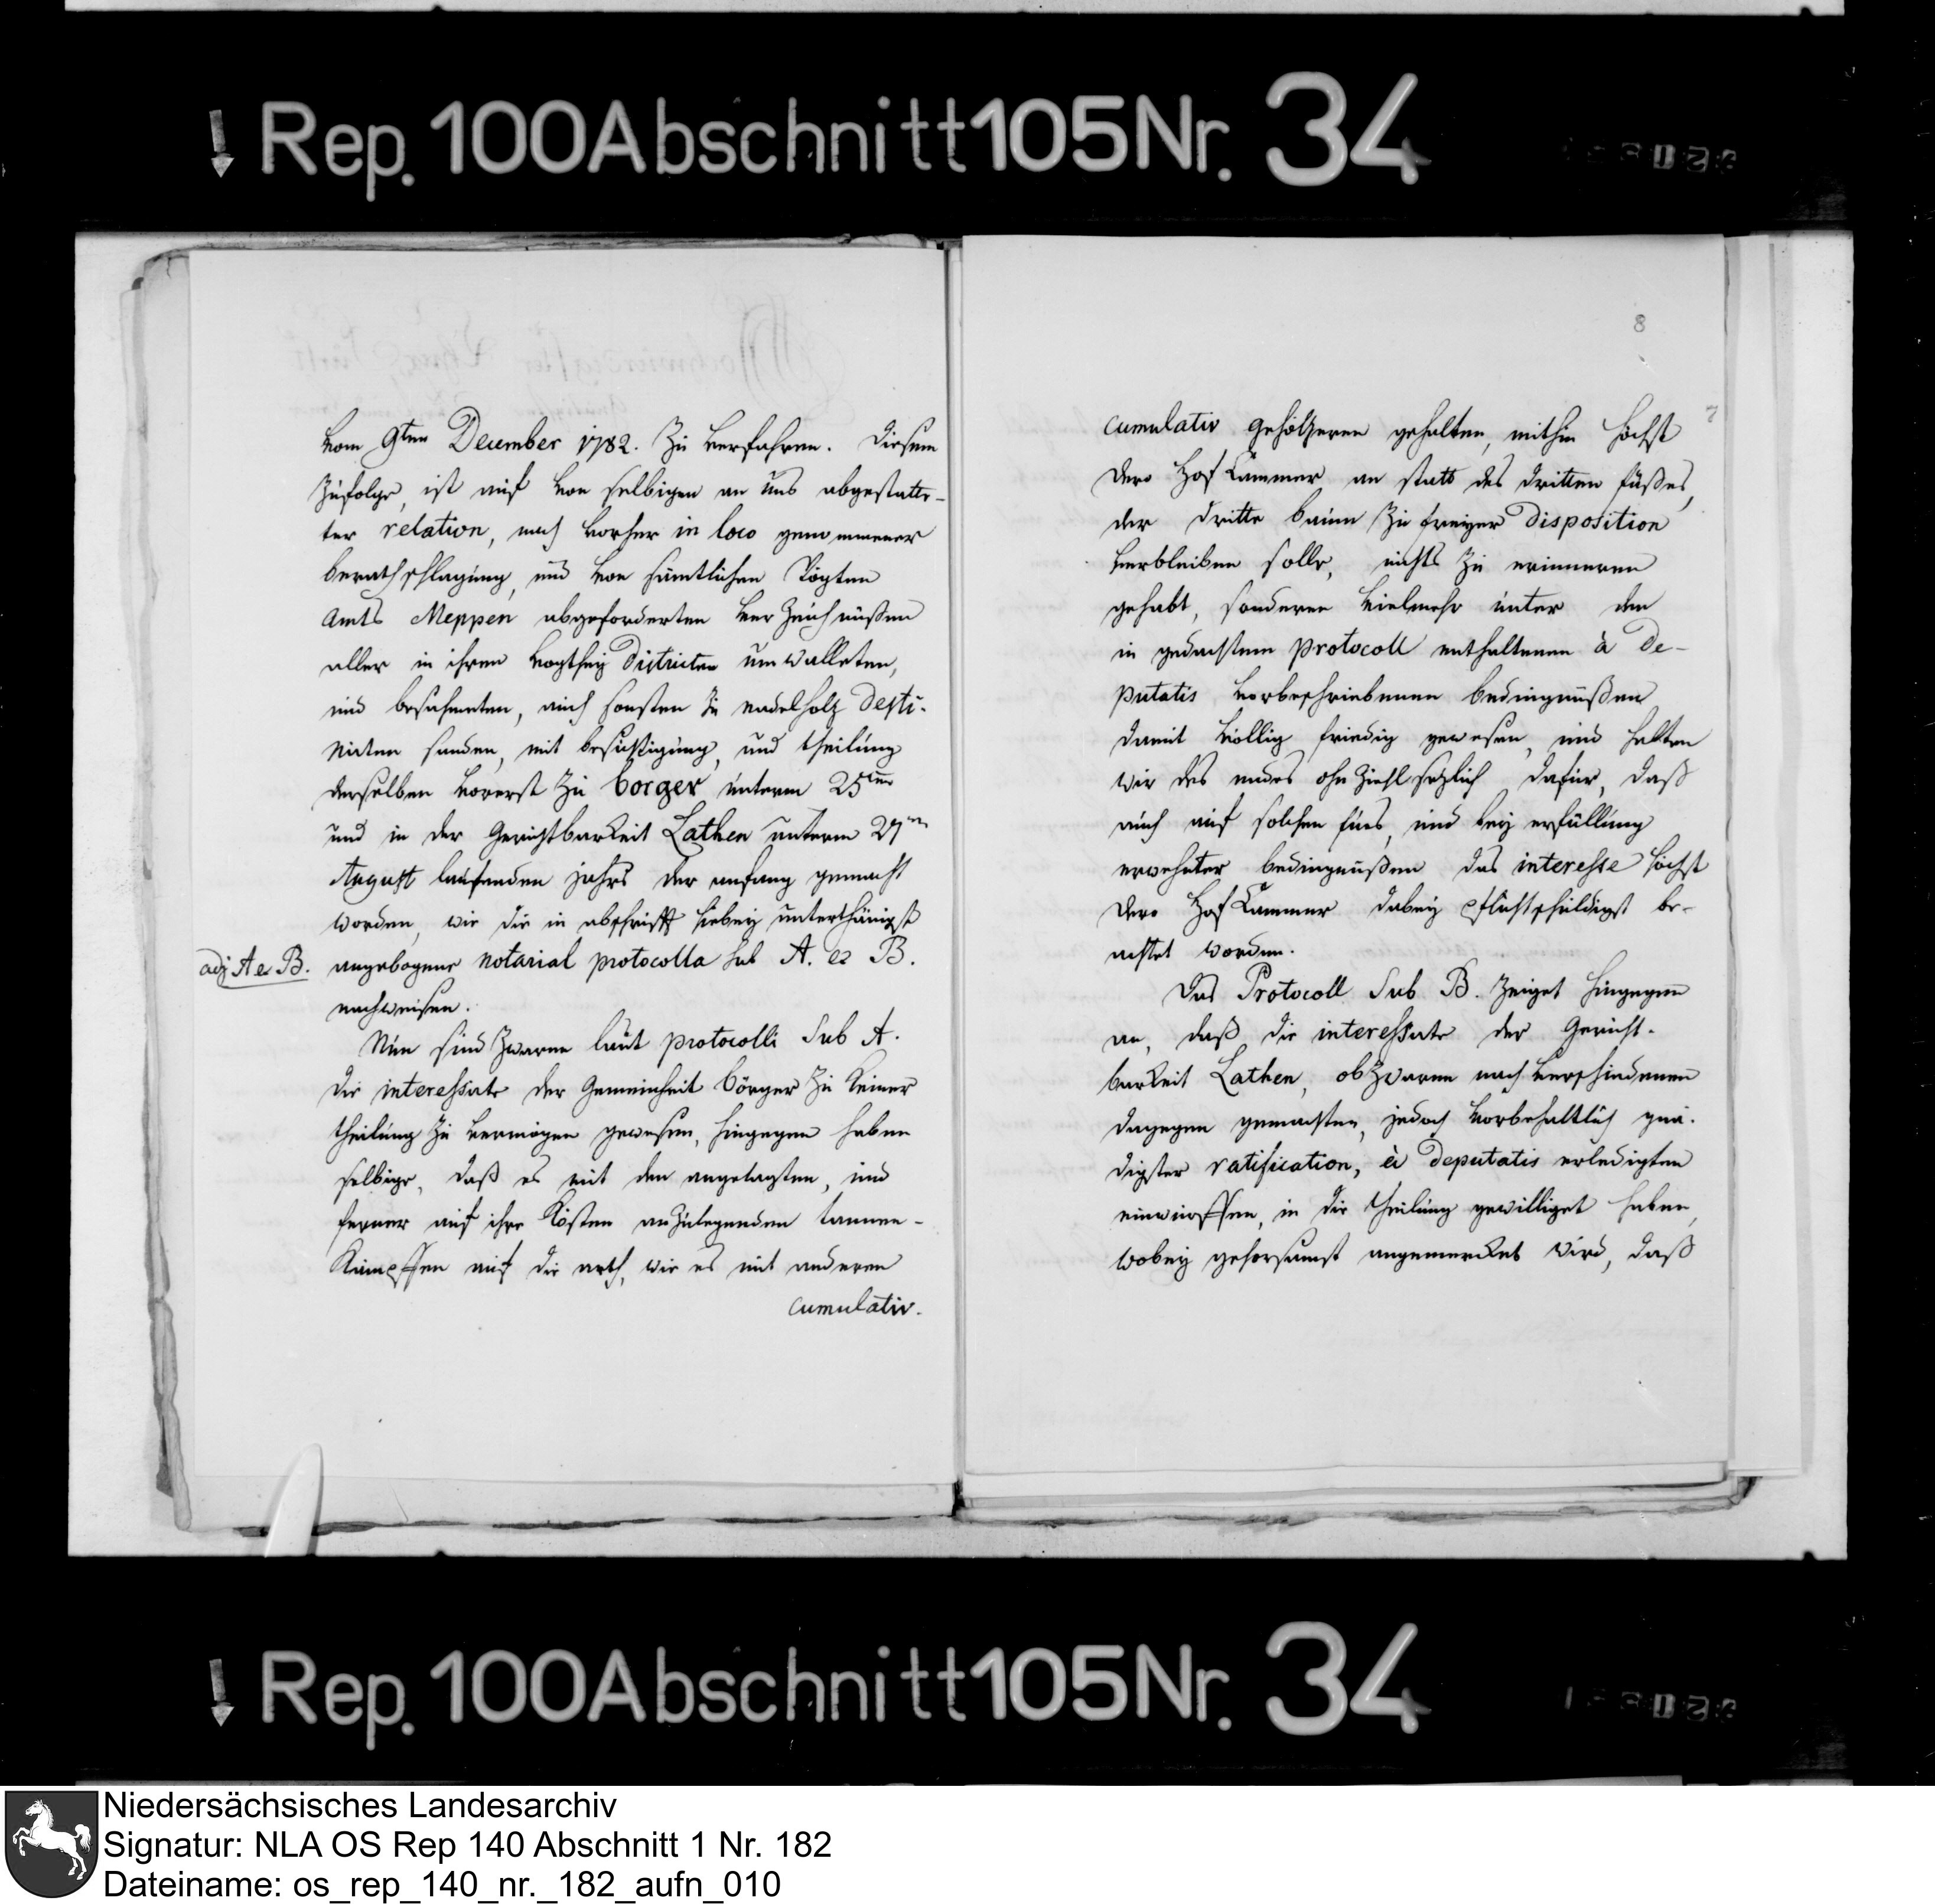 Rep. 100 Abschnitt 105 Nr. 34
vom 9ten December 1782. zu verfahren. diesem
zufolge, ist auf von selbigen an uns abgestatte-
ter relation, nach vorher in loco genommener
berathschlagung, und von sämtlichen Vögten
amts Meppen abgeforderten verzeichnüßen
aller in ihren vogthey districten umwalleten,
und besaameten, auch sonsten zu nadelholz desti-
nirten sanden, mit besichtigung, und theilung
derselben vorerst zu börger unterm 25ten
und in der Gerichtbarkeit Lathen unterm 27ten
August laufenden jahrs der anfang gemacht
worden, wie die in abschrifft hiebey unterthänigst
adj A et B. angebogene notarial protocolla sub A. et B.
nachweisen.
Nun sind zwaren laut protocolli sub A.
die interessate der Gemeinheit börger zu keiner
theilung zu vermögen gewesen, hingegen haben
selbige, daß es mit den angelagten, und
ferner auf ihre Kösten anzulegenden tannen-
Kämpffen auf die arth, wie es mit anderen
cumulativ.
8
7
cumulativ gehölzeren gehalten, mithin höchst
dero Hof Cammer an statt des dritten fußes,
der dritte baum zu freyer disposition
verbleiben solle, nichts zu erinneren
gehabt, sonderen vielmehr unter den
in gedachtem protocoll enthaltenen à de-
putatis vorbeschriebenen bedingnüßen
damit völlig friedig gewesen, und halten
wir des endes ohnzielsetzlich dafür, daß
auch auf solchen fues, und bey erfüllung
erwehnter bedingnüßen das interesse höchst
dero Hof Cammer dabey pflichtschuldigst be-
achtet worden.
Das Protocoll sub B. zeiget hingegen
an, daß die interessate der Gericht-
barkeit Lathen, obzwaren nach verschiedenen
dagegen gemachten, jedoch vorbehaltlich gnä-
digster ratification, à deputatis erledigten
einwürffen, in die theilung gewilliget haben,
wobey gehorsamst angemercket wird, daß
Rep. 100 Abschnitt 105 Nr. 34
Niedersächsisches Landesarchiv
Signatur: NLA OS Rep 140 Abschnitt 1 Nr. 182
Dateiname: os_rep_140_nr._182_aufn_010